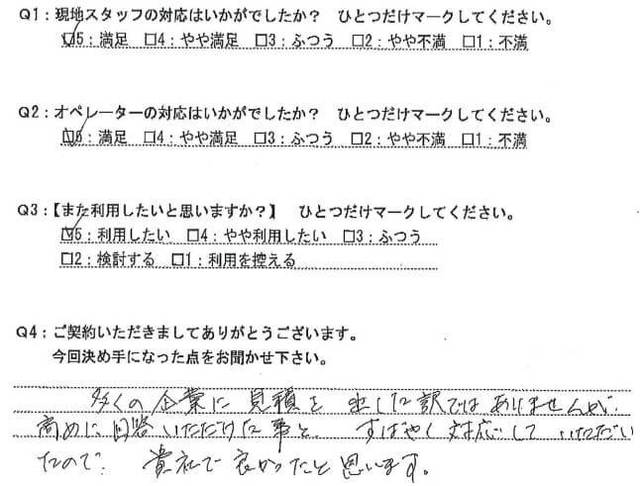 Q1：現地スタッフの対応はいかがでしたか？　ひとつだけマークしてください。
☑5：満足　□4：やや満足　□3：ふつう　□2：やや不満　□1：不満
Q2：オペレーターの対応はいかがでしたか？　ひとつだけマークしてください。
☑5：満足　□4：やや満足　□3：ふつう　□2：やや不満　□1：不満
Q3：【また利用したいと思いますか？】　ひとつだけマークしてください。
☑5：利用したい　□4：やや利用したい　□3：ふつう
□2：検討する　□1：利用を控える
Q4：ご契約いただきましてありがとうございます。
今回決め手になった点をお聞かせ下さい。
多くの企業に見積を出した訳ではありませんが、
高めに回答いただけた事と、すばやく対応していただい
たので、貴社で良かったと思います。